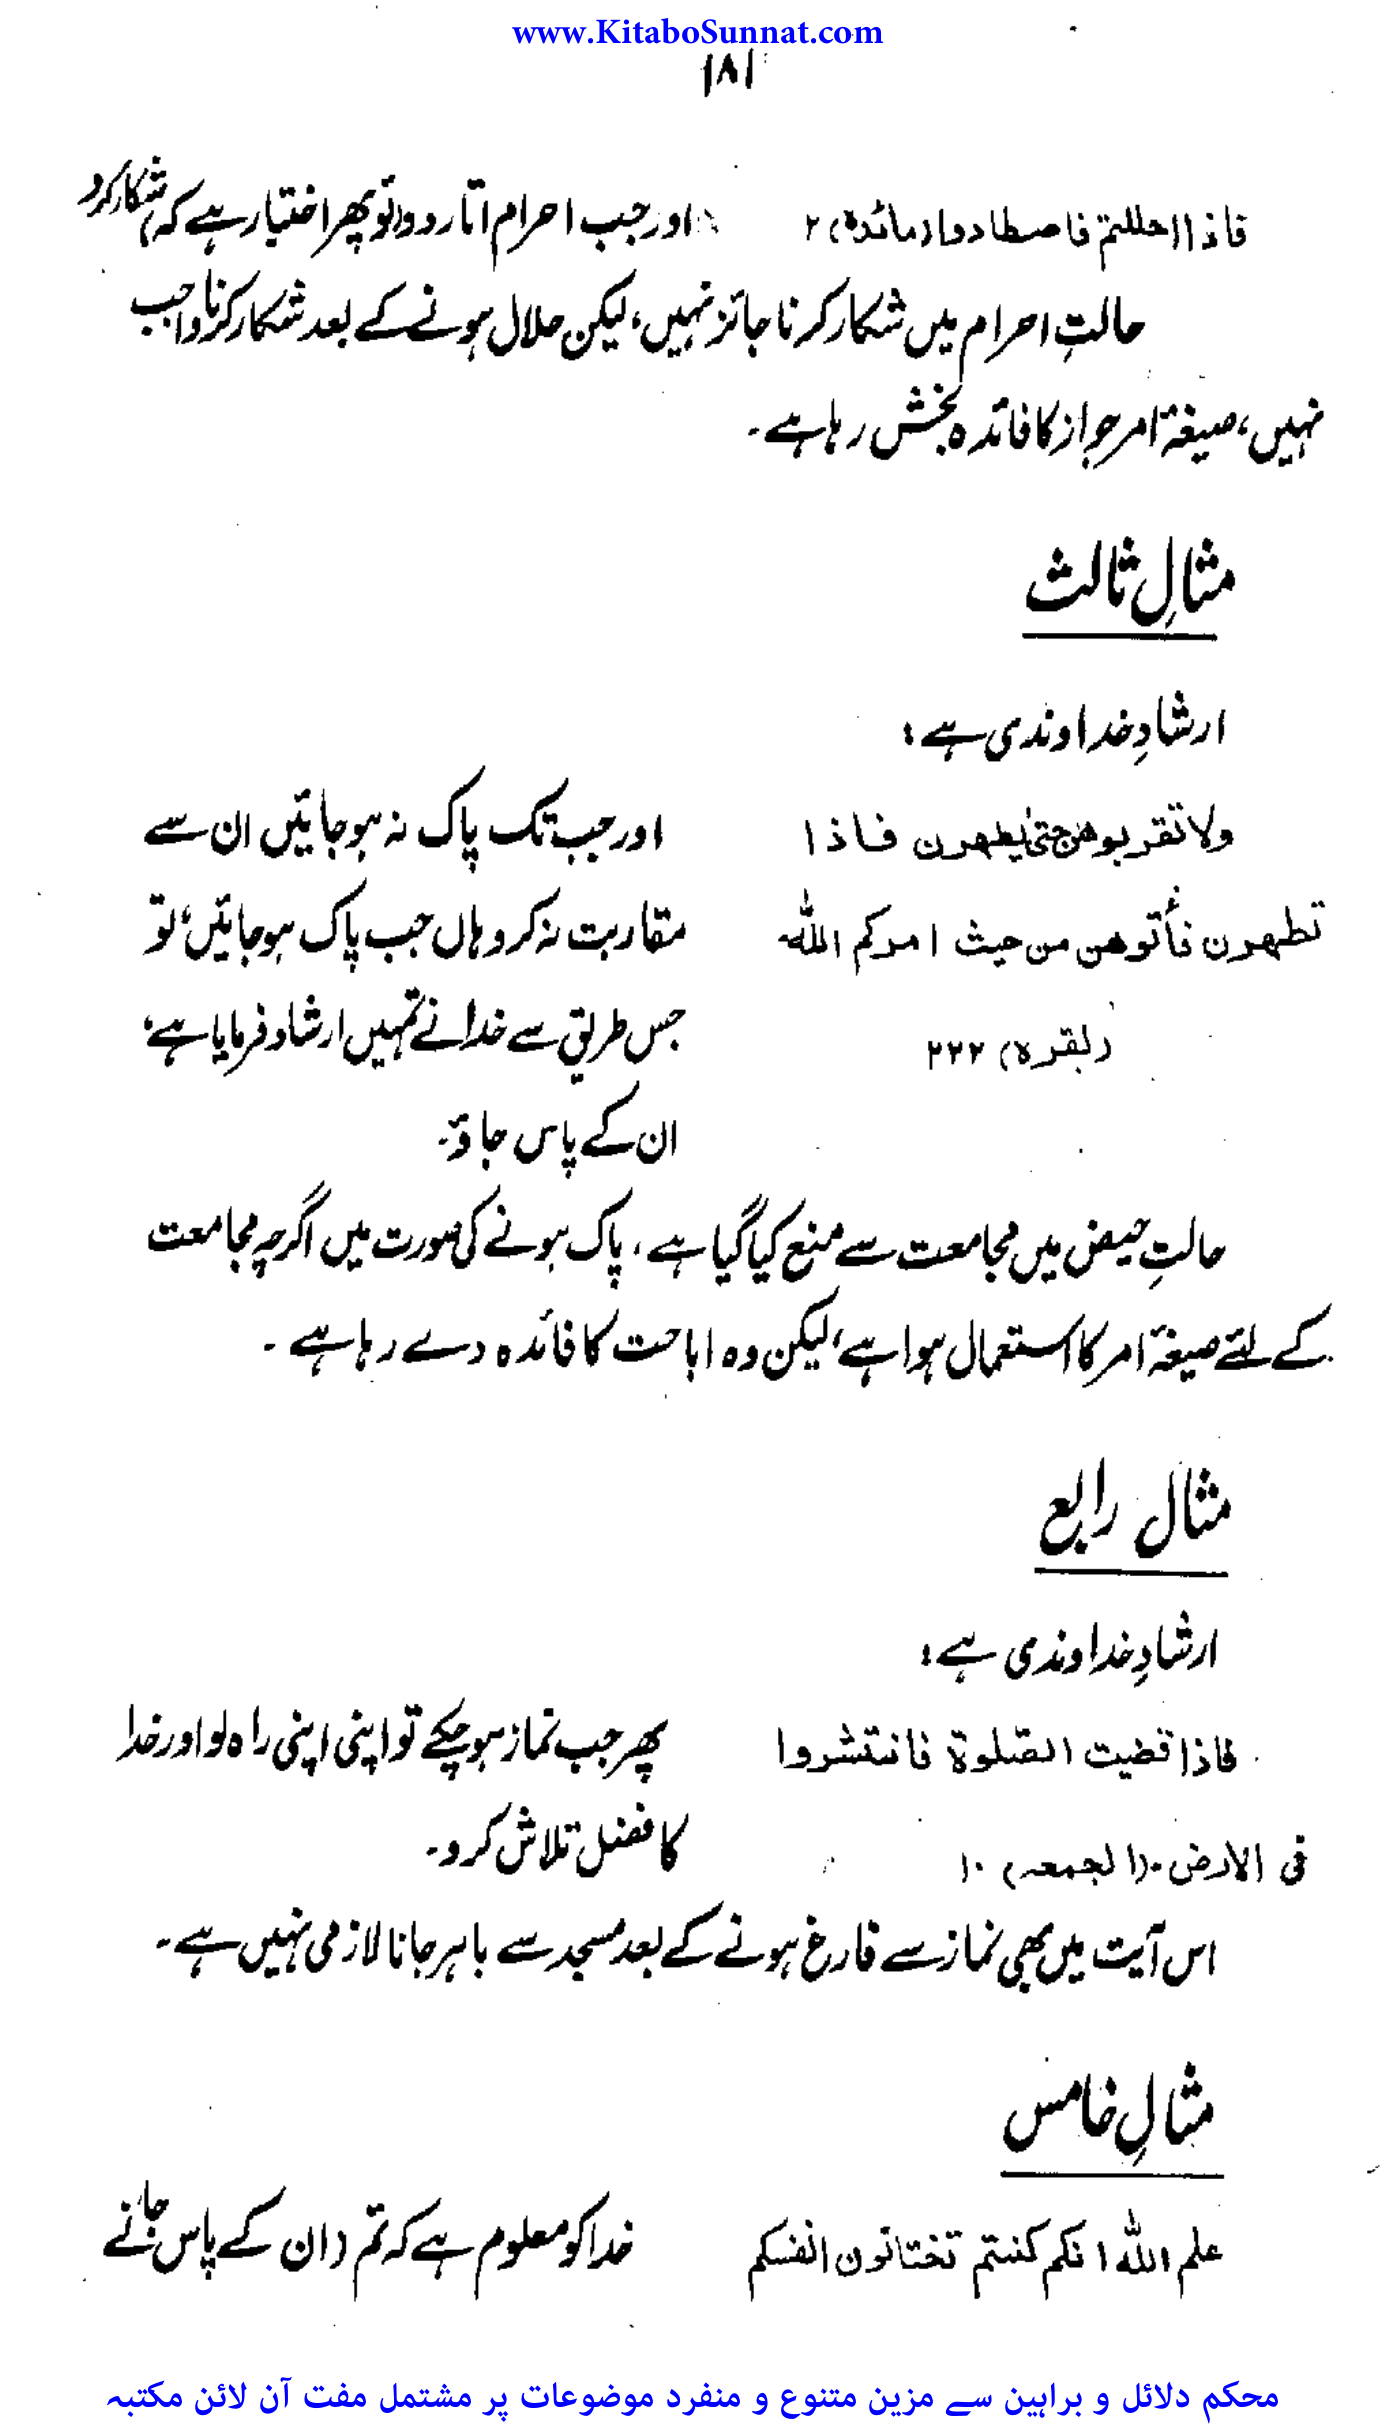 www.KitaboSunnat.com
۱۸۱
فاذا احللتم فاصطادوا (مائدۃ) ۲ اور جب احرام اتار دو، تو پھر اختیار ہے کہ، شکار کرو
حالتِ احرام میں شکار کرنا جائز نہیں، لیکن حلال ہونے کے بعد شکار کرنا واجب
نہیں، صیغۂ امر جواز کا فائدہ بخش رہا ہے۔
مثالِ ثالث
ارشادِ خداوندی ہے:
ولا تقربوھن حتیٰ یطھرن فاذا اور جب تک پاک نہ ہو جائیں ان سے
تطھرن فأتوھن من حیث امرکم اللہ مقاربت نہ کرو ہاں جب پاک ہو جائیں، تو
(بقرہ) ۲۲۲ جس طریق سے خدا نے تمہیں ارشاد فرمایا ہے،
ان کے پاس جاؤ۔
حالتِ حیض میں مجامعت سے منع کیا گیا ہے، پاک ہونے کی صورت میں اگرچہ مجامعت
کے لئے صیغۂ امر کا استعمال ہوا ہے، لیکن وہ اباحت کا فائدہ دے رہا ہے۔
مثال رابع
ارشادِ خداوندی ہے:
فاذا قضیت الصّلوۃ فانتشروا پھر جب نماز ہو چکے تو اپنی اپنی راہ لو اور خدا
فی الارض۔ (الجمعہ) ۱۰ کا فضل تلاش کرو۔
اس آیت میں بھی نماز سے فارغ ہونے کے بعد مسجد سے باہر جانا لازمی نہیں ہے۔
مثالِ خامس
علم اللہ انکم کنتم تختانون انفسکم خدا کو معلوم ہے کہ تم (ان کے پاس جانے
محکم دلائل و براہین سے مزین متنوع و منفرد موضوعات پر مشتمل مفت آن لائن مکتبہ